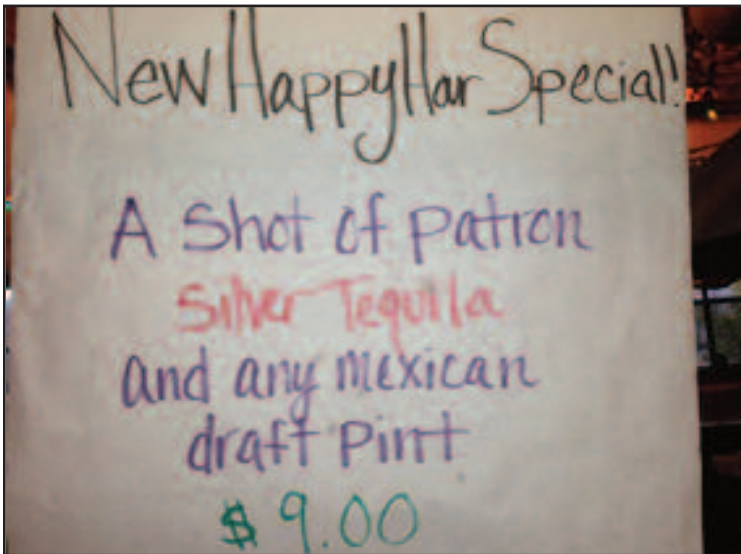 New Happy Hour Special!
A Shot of Patron
Silver Tequila
and any mexican
draft pint
$ 9.00